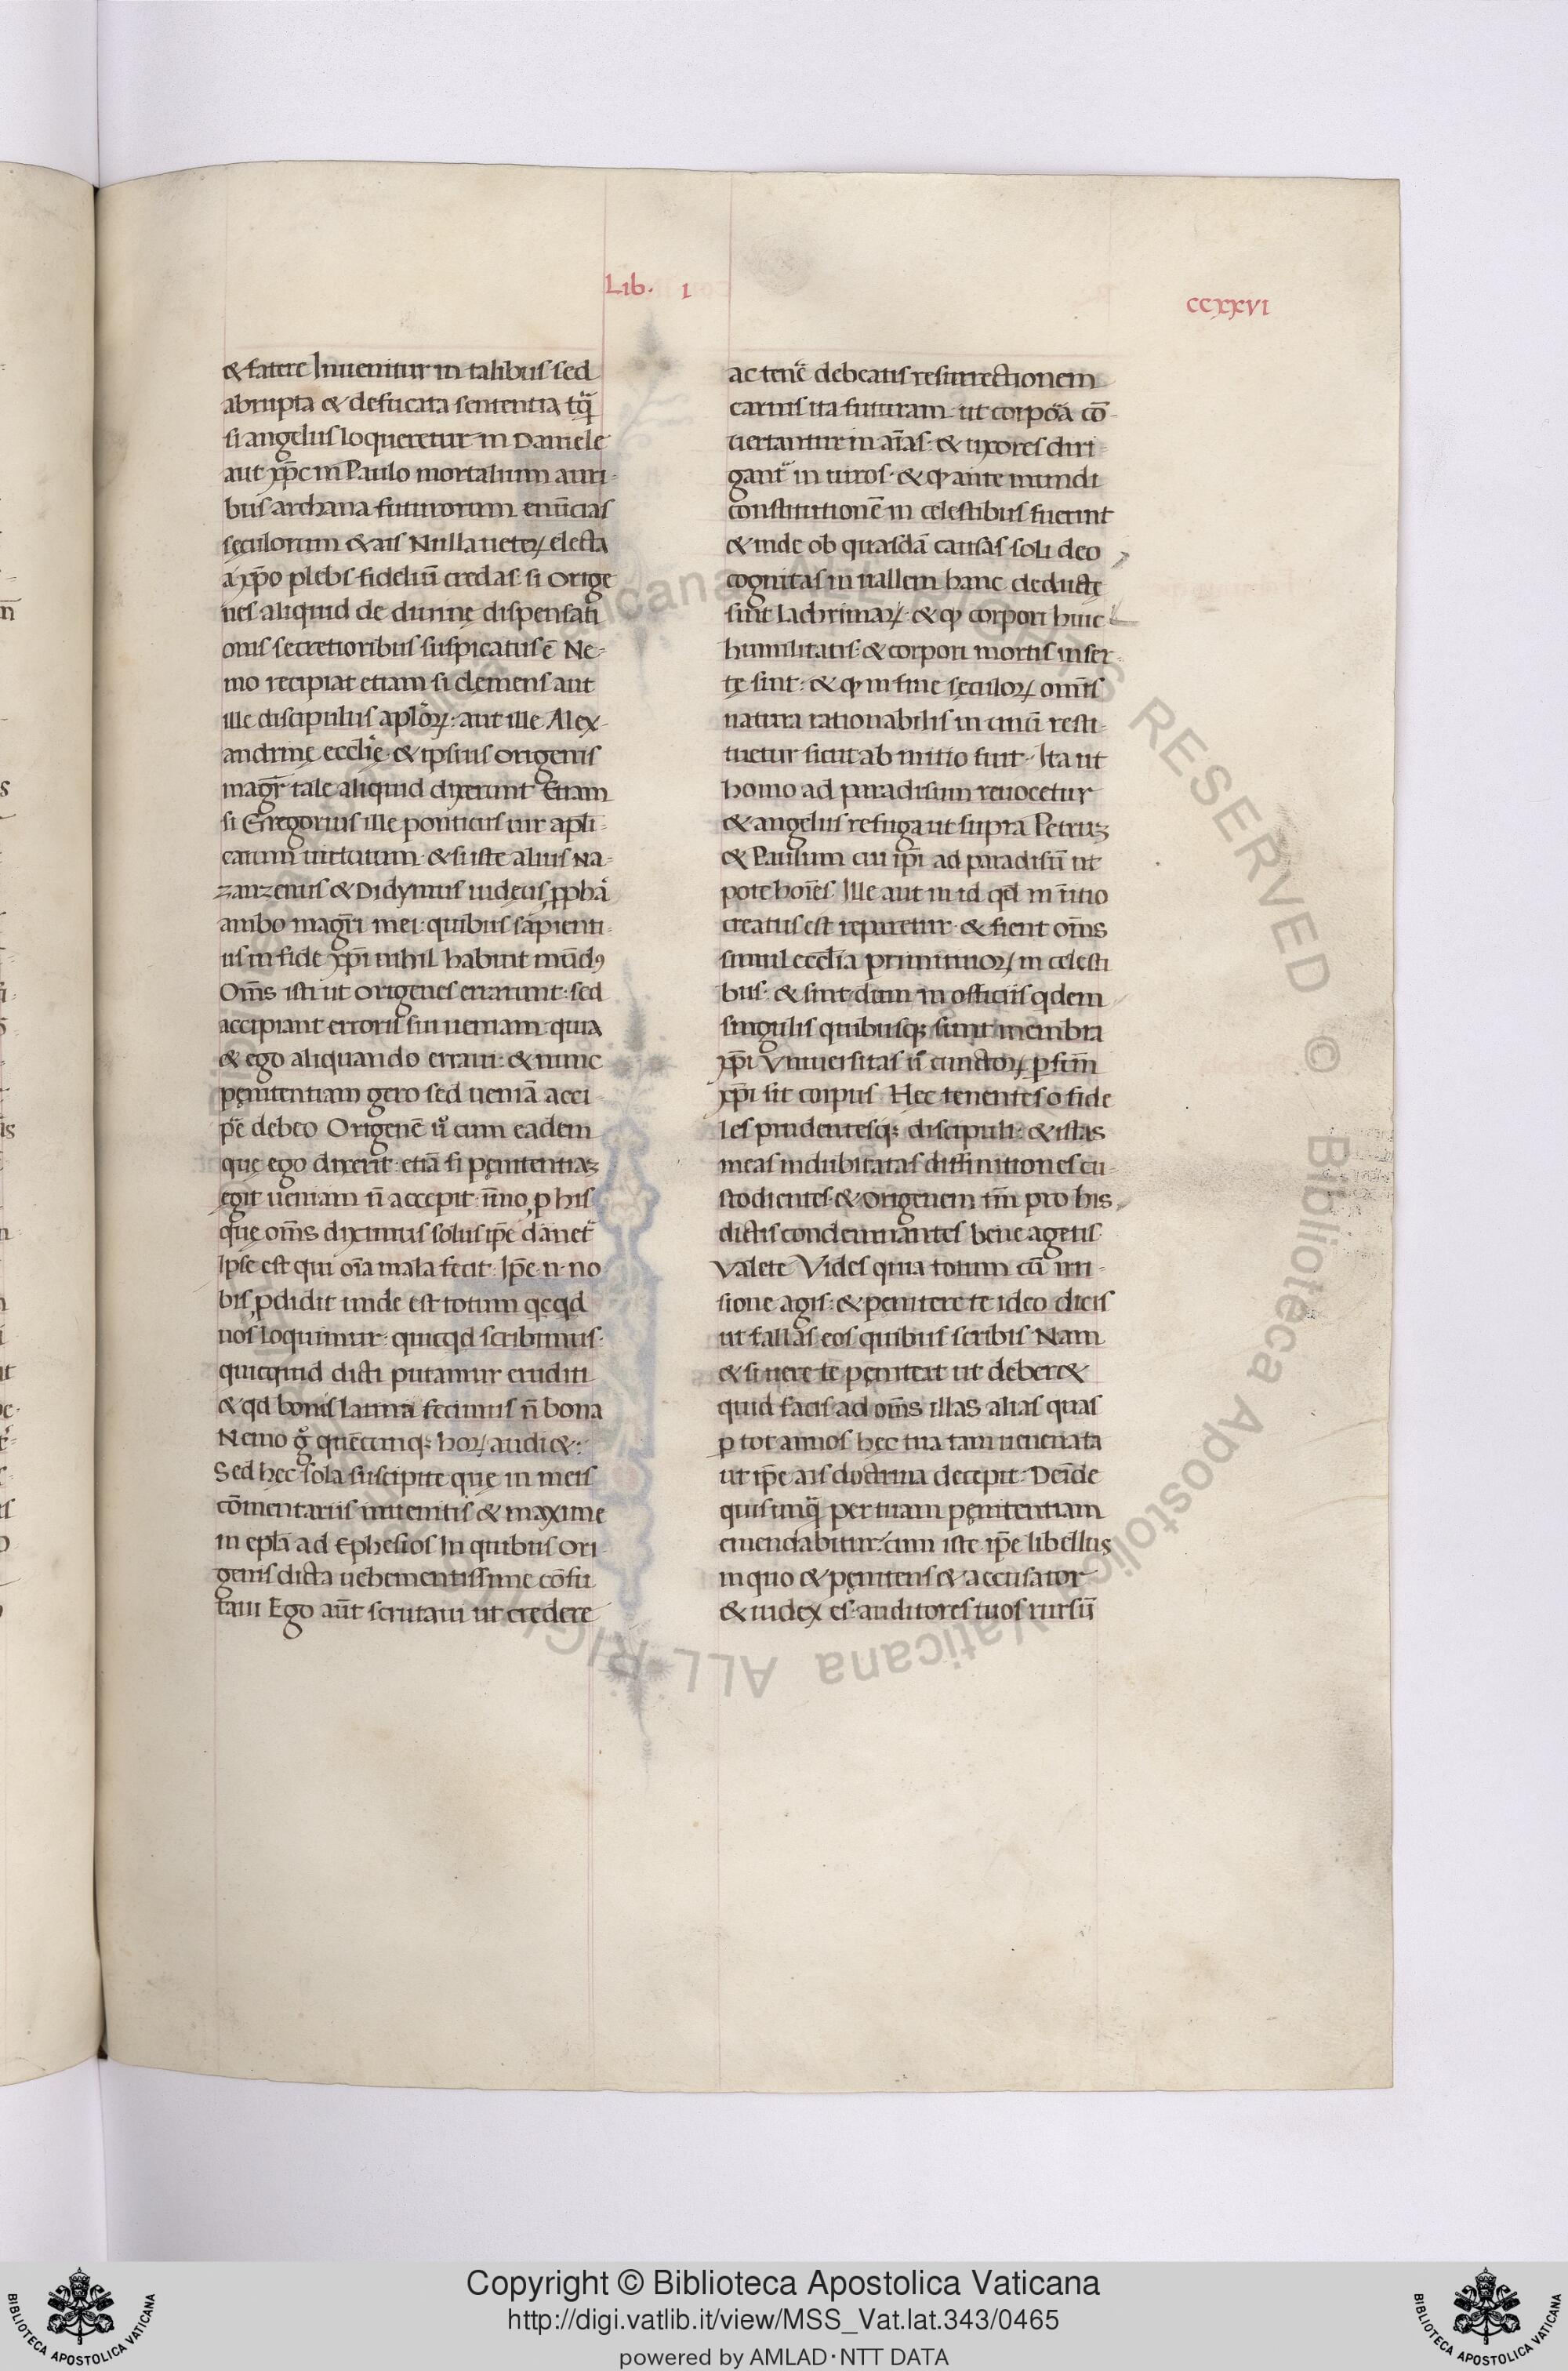 Lib. I
CCXXVI
& fatere Inuenitur in talibus sed
abrupta & defucata sententia tq̃
si angelus loqueretur in Daniele
aut xp̄c in Paulo mortalium auri-
bus archana futurorum enūcias
sęculorum & ais Nulla ueteꝝ electa
a xp̄o plebs fideliū credas si Orige
nes aliquid de diuinę dispensati
onis secretioribus suspicatus ē Ne-
mo recipiat etiam si clemens aut
ille discipulus aplõꝝ aut ille Alex-
andrinę eccl̄ię & ipsius origenis
magr̄ tale aliquid dixerunt Etiam
si Gregorius ille ponticus uir apl̄i-
carum uirtutum & si iste alius Na-
zanzenus & Didymus uidens ꝓpha
ambo magr̄i mei quibus sapienti-
us in fide xp̄i nihil habuit mūdꝰ
Om̄s isti ut origenes errarunt: sed
accipiant erroris sui ueniam quia
& ego aliquando erraui: & nunc
pęnitentiam gero sed ueniā acci-
pe debeo Origenē u̾ cum eadem
quę ego dixerit etiā si pęnitentiaꝫ
egit ueniam n̄ accepit īmo, ꝓ his
quę om̄s diximus solus ip̄e danet̃
Ipse est qui oīa mala fecit Ip̄e n. no
bis ꝓdidit unde est totum qcqd
nos loquimur: quicqd scribimus
quicquid dicti putamur eruditi
& qd bonis latina fecimus n̄ bona
Nemo g̊ quēcunqꝫ hoꝝ audi&:
Sed hec sola suscipite quę in meis
cōmentariis inuenitis & maxime
in epl̄a ad Ephesios In quibus Ori
genis dicta uehementissime cōfu
taui Ego aūt scrutaui ut credere
ac tenẽ debeatis resurrectionem
carnis ita futuram ut corpõa cō-
uertantur in aīas & uxores diri-
gant̃ in uiros & qꝫ ante mundi
constitutionē in celestibus fuerint
& inde ob quasdā causas soli deo
cognitas in uallem hanc deductę
sint lachrimaꝝ & qꝫ corpori huic
humilitatis & corpori mortis inser-
tę sint: & qꝫ in fine sęculoꝝ omīs
natura rationabilis in unū resti-
tuetur sicut ab initio fuit Ita ut
homo ad paradisum reuocetur
& angelus refuga ut supra Petruꝫ
& Paulum cui ip̄i ad paradisū ut
pote hoīes Ille aut in id qd in ītio
creatus est reparetur & fient om̄s
simul eccl̄ia primitiuoꝝ in celesti
bus & sint dum in officiis qdem
singulis quibusqꝫ sunt membra
xp̄i Vniuersitas u̾ cunctoꝝ ꝑ sim̄
xp̄i sit corpus Hec tenentes o fide
les prudentesqꝫ discipuli: & istas
meas indubitatas diffinitiones cu-
stodientes & origenem tm̄ pro his
dictis condemnantes bene agetis
Valete Vides quia totum cū irri-
sione agis: & penitere te ideo dicis
ut fallas eos quibus scribis Nam
& si uere te pęniteat ut deber&
quid facis ad om̄s illas alias quas
ꝑ tot annos hec tua tam uenenata
ut ip̄e ais doctrina decepit Deīde
quis unq̃ per tuam pęnitentiam
emendabitur: cum iste ip̄e libellus
in quo & pęnitens & accusator
& iudex es auditores tuos rursū
Copyright © Biblioteca Apostolica Vaticana
http://digi.vatlib.it/view/MSS_Vat.lat.343/0465
powered by AMLAD·NTT DATA